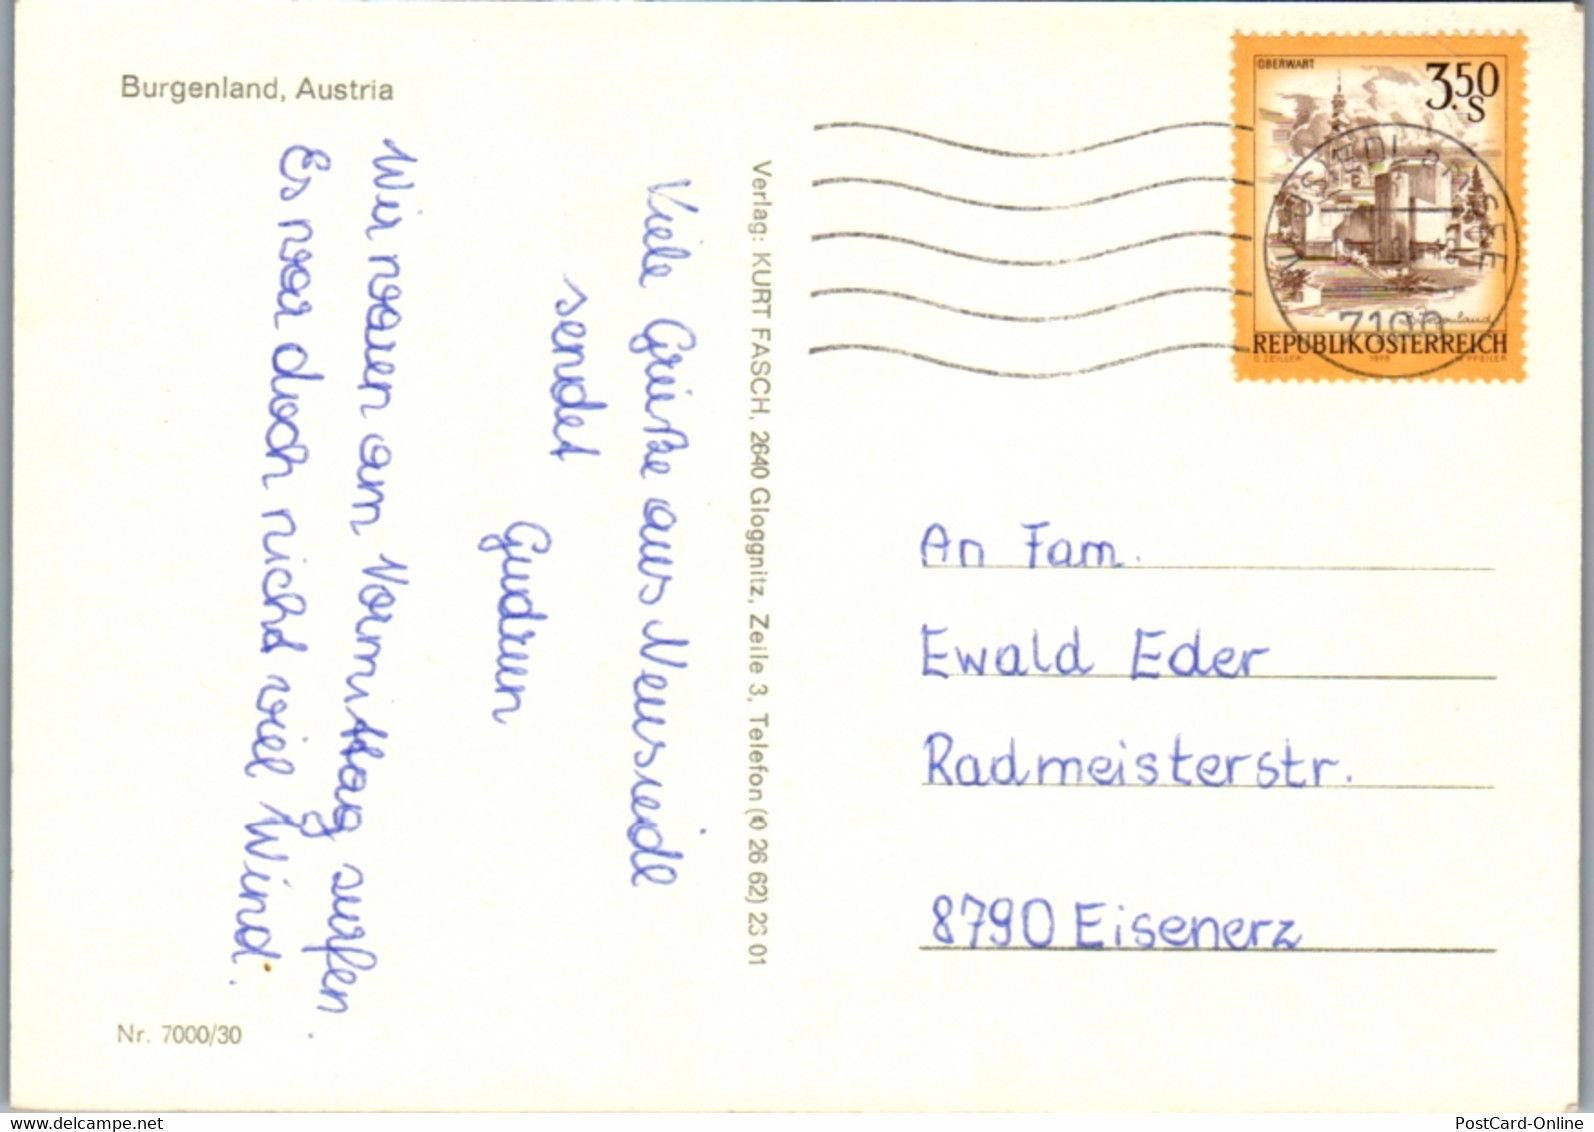 Burgenland, Austria
Viele Grüße aus Neusiedl
sendet
Gudrun
Wir waren am Vormittag surfen.
Es war doch nicht viel Wind.
Nr. 7000/30
Verlag: KURT FASCH, 2640 Gloggnitz, Zeile 3, Telefon (0 26 62) 23 01
OBERWART
3.50
S
Burgenland
REPUBLIK ÖSTERREICH
O. ZEILLER 1978 PFEILER
NEUSIEDL AM SEE
7100
An Fam.
Ewald Eder
Radmeisterstr.
8790 Eisenerz
PostCard-Online
delcampe.net